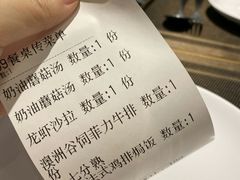 餐桌传菜单
奶油蘑菇汤 数量:1 份
奶油蘑菇汤 数量:1 份
龙虾沙拉 数量:1 份
澳洲谷饲菲力牛排 数量:1
七分熟
式鸡排焗饭